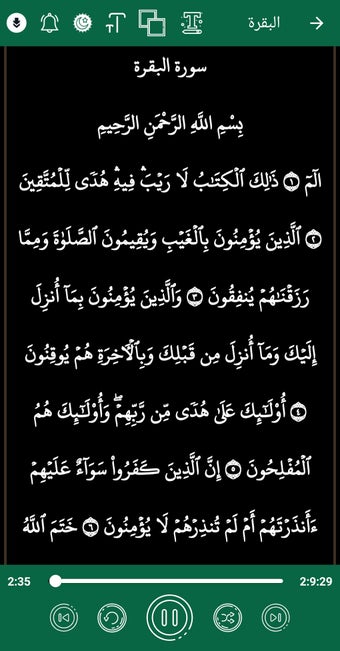 البقرة
سورة البقرة
بِسْمِ اللَّهِ الرَّحْمَنِ الرَّحِيمِ
الٓمٓ ۝١ ذَٰلِكَ ٱلْكِتَـٰبُ لَا رَيْبَ ۛ فِيهِ ۛ هُدًى لِّلْمُتَّقِينَ
۝٢ ٱلَّذِينَ يُؤْمِنُونَ بِٱلْغَيْبِ وَيُقِيمُونَ ٱلصَّلَوٰةَ وَمِمَّا
رَزَقْنَـٰهُمْ يُنفِقُونَ ۝٣ وَٱلَّذِينَ يُؤْمِنُونَ بِمَآ أُنزِلَ
إِلَيْكَ وَمَآ أُنزِلَ مِن قَبْلِكَ وَبِٱلْـَٔاخِرَةِ هُمْ يُوقِنُونَ
۝٤ أُو۟لَـٰٓئِكَ عَلَىٰ هُدًى مِّن رَّبِّهِمْ ۖ وَأُو۟لَـٰٓئِكَ هُمُ
ٱلْمُفْلِحُونَ ۝٥ إِنَّ ٱلَّذِينَ كَفَرُوا۟ سَوَآءٌ عَلَيْهِمْ
ءَأَنذَرْتَهُمْ أَمْ لَمْ تُنذِرْهُمْ لَا يُؤْمِنُونَ ۝٦ خَتَمَ ٱللَّهُ
2:35
2:9:29